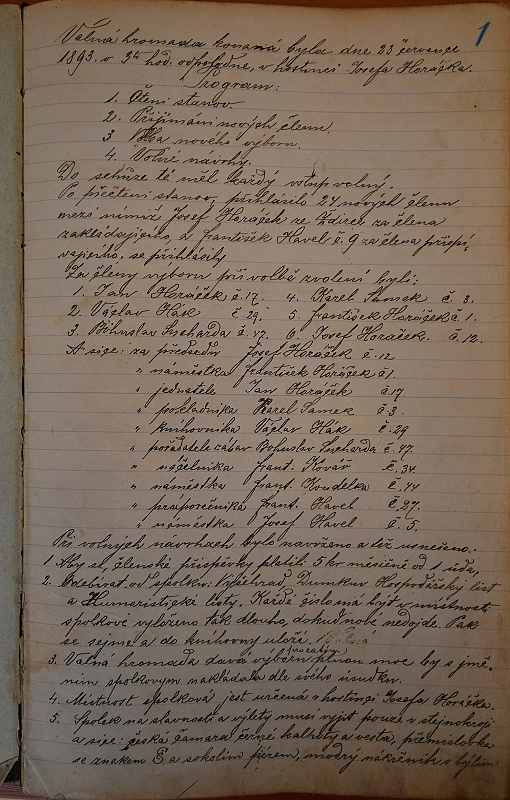 1
Valná hromada konaná byla dne 23 července
1893. o 3tí hod. odpoledne, v hostinci Josefa Horáčka.
Program:
1. Čtení stanov.
2. Přijímání nových členů.
3 Volba nového výboru.
4. Volné návrhy.
Do schůze té měl každý vstup volný.
Po přečtení stanov, přihlásilo 24 nových členů
mezi nimiž Josef Horáček ze Ždírce za člena
zakládajícího, a František Havel č. 9 za člena přispí,
vajícího. se přihlásily
Za členy výboru při volbě zvoleni byli:
1. Jan Horáček č. 17. 4. Karel Samek č. 3.
2. Václav Hák č 29. 5. František Horáček č. 1.
3. Bohuslav Sucharda č. 47. 6. Josef Horáček. č. 12.
A sice: za předsedu Josef Horáček č. 12
" náměstka František Horáček č 1.
" jednatele Jan Horáček č. 17.
" pokladníka Karel Samek č. 3.
" knihovníka Václav Hák č. 29
" pořadatele Bohuslav Sucharda č. 47.
" náčelníka Frant. Kovář č. 34.
" náměstka Frant. Koudelka č. 44
" praporečníka Frant. Havel č. 27.
" náměstka Josef Havel č. 5.
Při volných návrzích bylo navrženo a též usneseno.
1. Aby se, členské příspěvky platili 5 kr měsíčně od 1 údu,
2. Odebírat od spolku: Vyšehrad Hospodářský list
a Humoristické listy. Každé číslo má být v místnosti
spolkové vyloženo tak dlouho, dokud nové nedojde. Pak
se sejme a do knihovny uloží.
3. Valná hromada dává výboru plnou moc by s jmě-
ním spolkovým nakládala dle svého úsudku.
4. Místnost spolková jest určená v hostinci Josefa Horáčka.
5. Spolek na slavnosti a výlety musí vyjít pouze v stejnokroji
a sice: česká čamara černé kalhoty a vesta, přemislovka
se znakem a sokolím pérem, modrý nákrčník s býlím